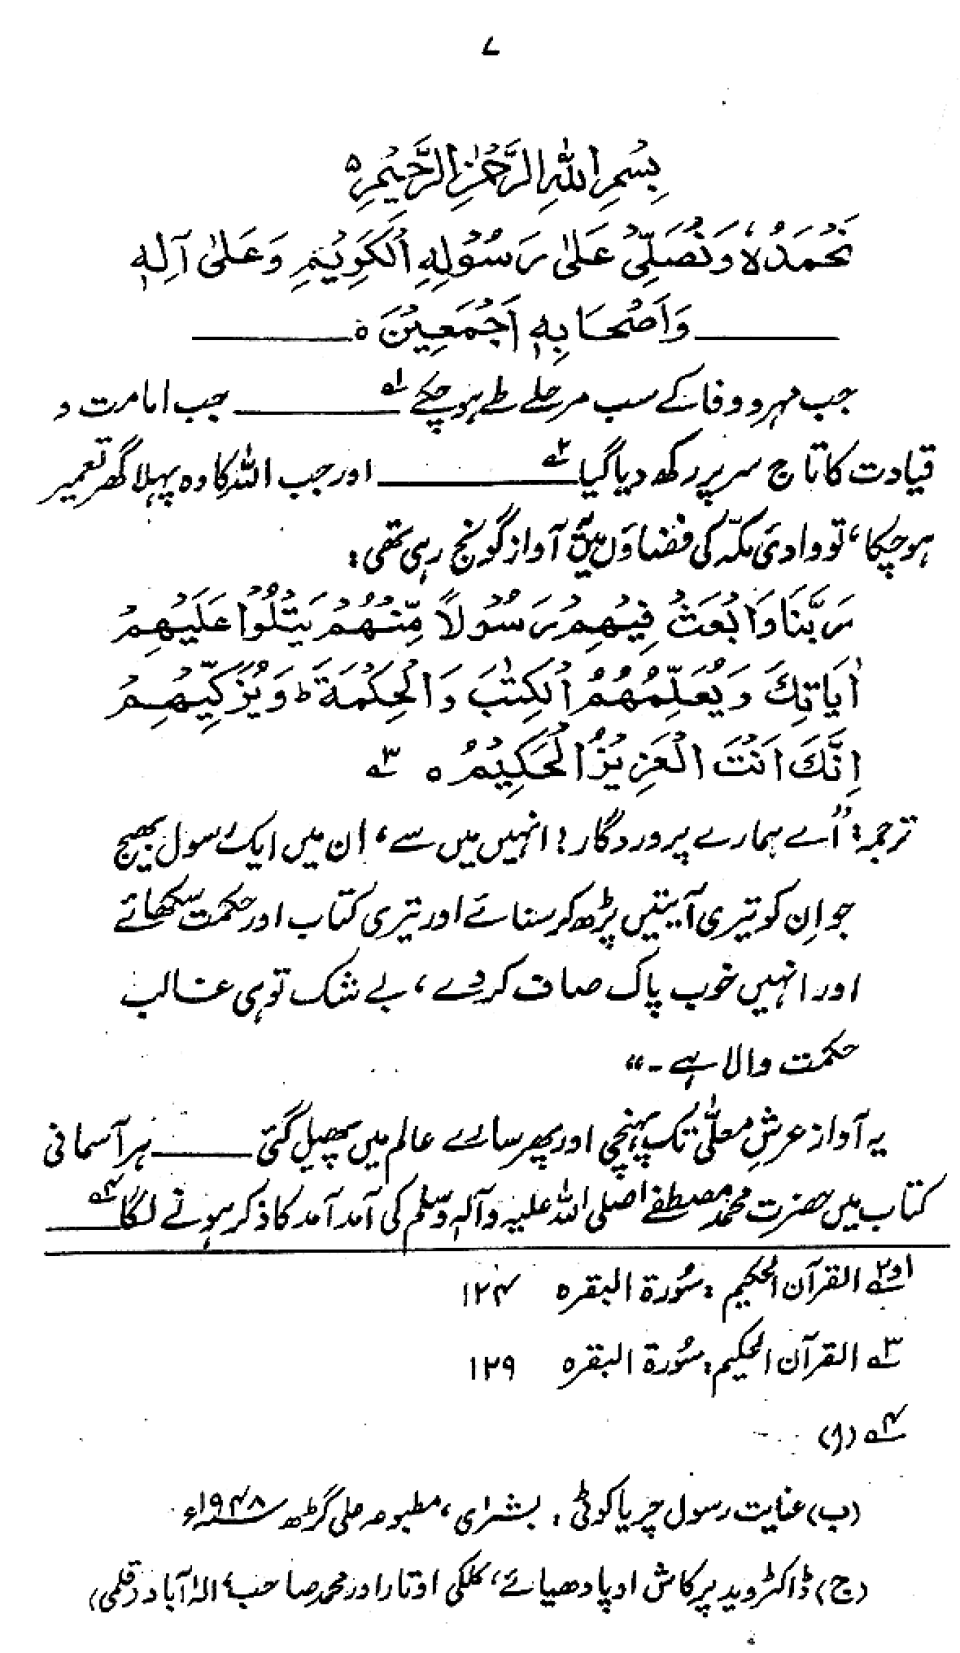 ۷
بِسْمِ اللهِ الرَّحْمٰنِ الرَّحِيْمِ ۵
نَحْمَدُهٗ وَنُصَلِّیْ عَلٰی رَسُوْلِهِ الْكَرِيْمِ وَعَلٰی آلِهٖ
وَاَصْحَابِهٖ اَجْمَعِيْنَ ۵
جب مہر و وفا کے سب مرحلے طے ہو چکے ۱؎ ــــــــ جب امامت و
قیادت کا تاج سر پر رکھ دیا گیا ۲؎ ــــــــ اور جب اللہ کا وہ پہلا گھر تعمیر
ہو چکا، تو وادیٔ مکّہ کی فضاؤں میں آواز گونج رہی تھی:
رَبَّنَا وَابْعَثْ فِيْهِمْ رَسُوْلاً مِّنْهُمْ يَتْلُوْا عَلَيْهِمْ
اٰيَاتِكَ وَيُعَلِّمُهُمُ الْكِتٰبَ وَالْحِكْمَةَ ط وَيُزَكِّيْهِمْ
اِنَّكَ اَنْتَ الْعَزِيْزُ الْحَكِيْمُ ۵ ۳؎
ترجمہ: "اے ہمارے پروردگار! انہیں میں سے، ان میں ایک رسول بھیج
جو اِن کو تیری آیتیں پڑھ کر سنائے اور تیری کتاب اور حکمت سکھائے
اور انہیں خوب پاک صاف کر دے، بے شک تو ہی غالب
حکمت والا ہے۔"
یہ آواز عرشِ معلّٰی تک پہنچی اور پھر سارے عالم میں پھیل گئی ــــــــ ہر آسمانی
کتاب میں حضرتِ محمد مصطفےٰ صلی اللہ علیہ وآلہٖ وسلم کی آمد آمد کا ذکر ہونے لگا ۴؎ ــــــــ
۱ و ۲؎ القرآن الحکیم: سُورۃ البقرہ ۱۲۴
۳؎ القرآن الحکیم: سُورۃ البقرہ ۱۲۹
۴؎ (ا)
(ب) عنایت رسول چریاکوٹی: بشریٰ، مطبوعہ علی گڑھ ۱۹۴۸ء
(ج) ڈاکٹر وید پرکاش اوپادھیائے، کلکی اوتار اور محمد صاحب، الہٰ آباد (قلمی)